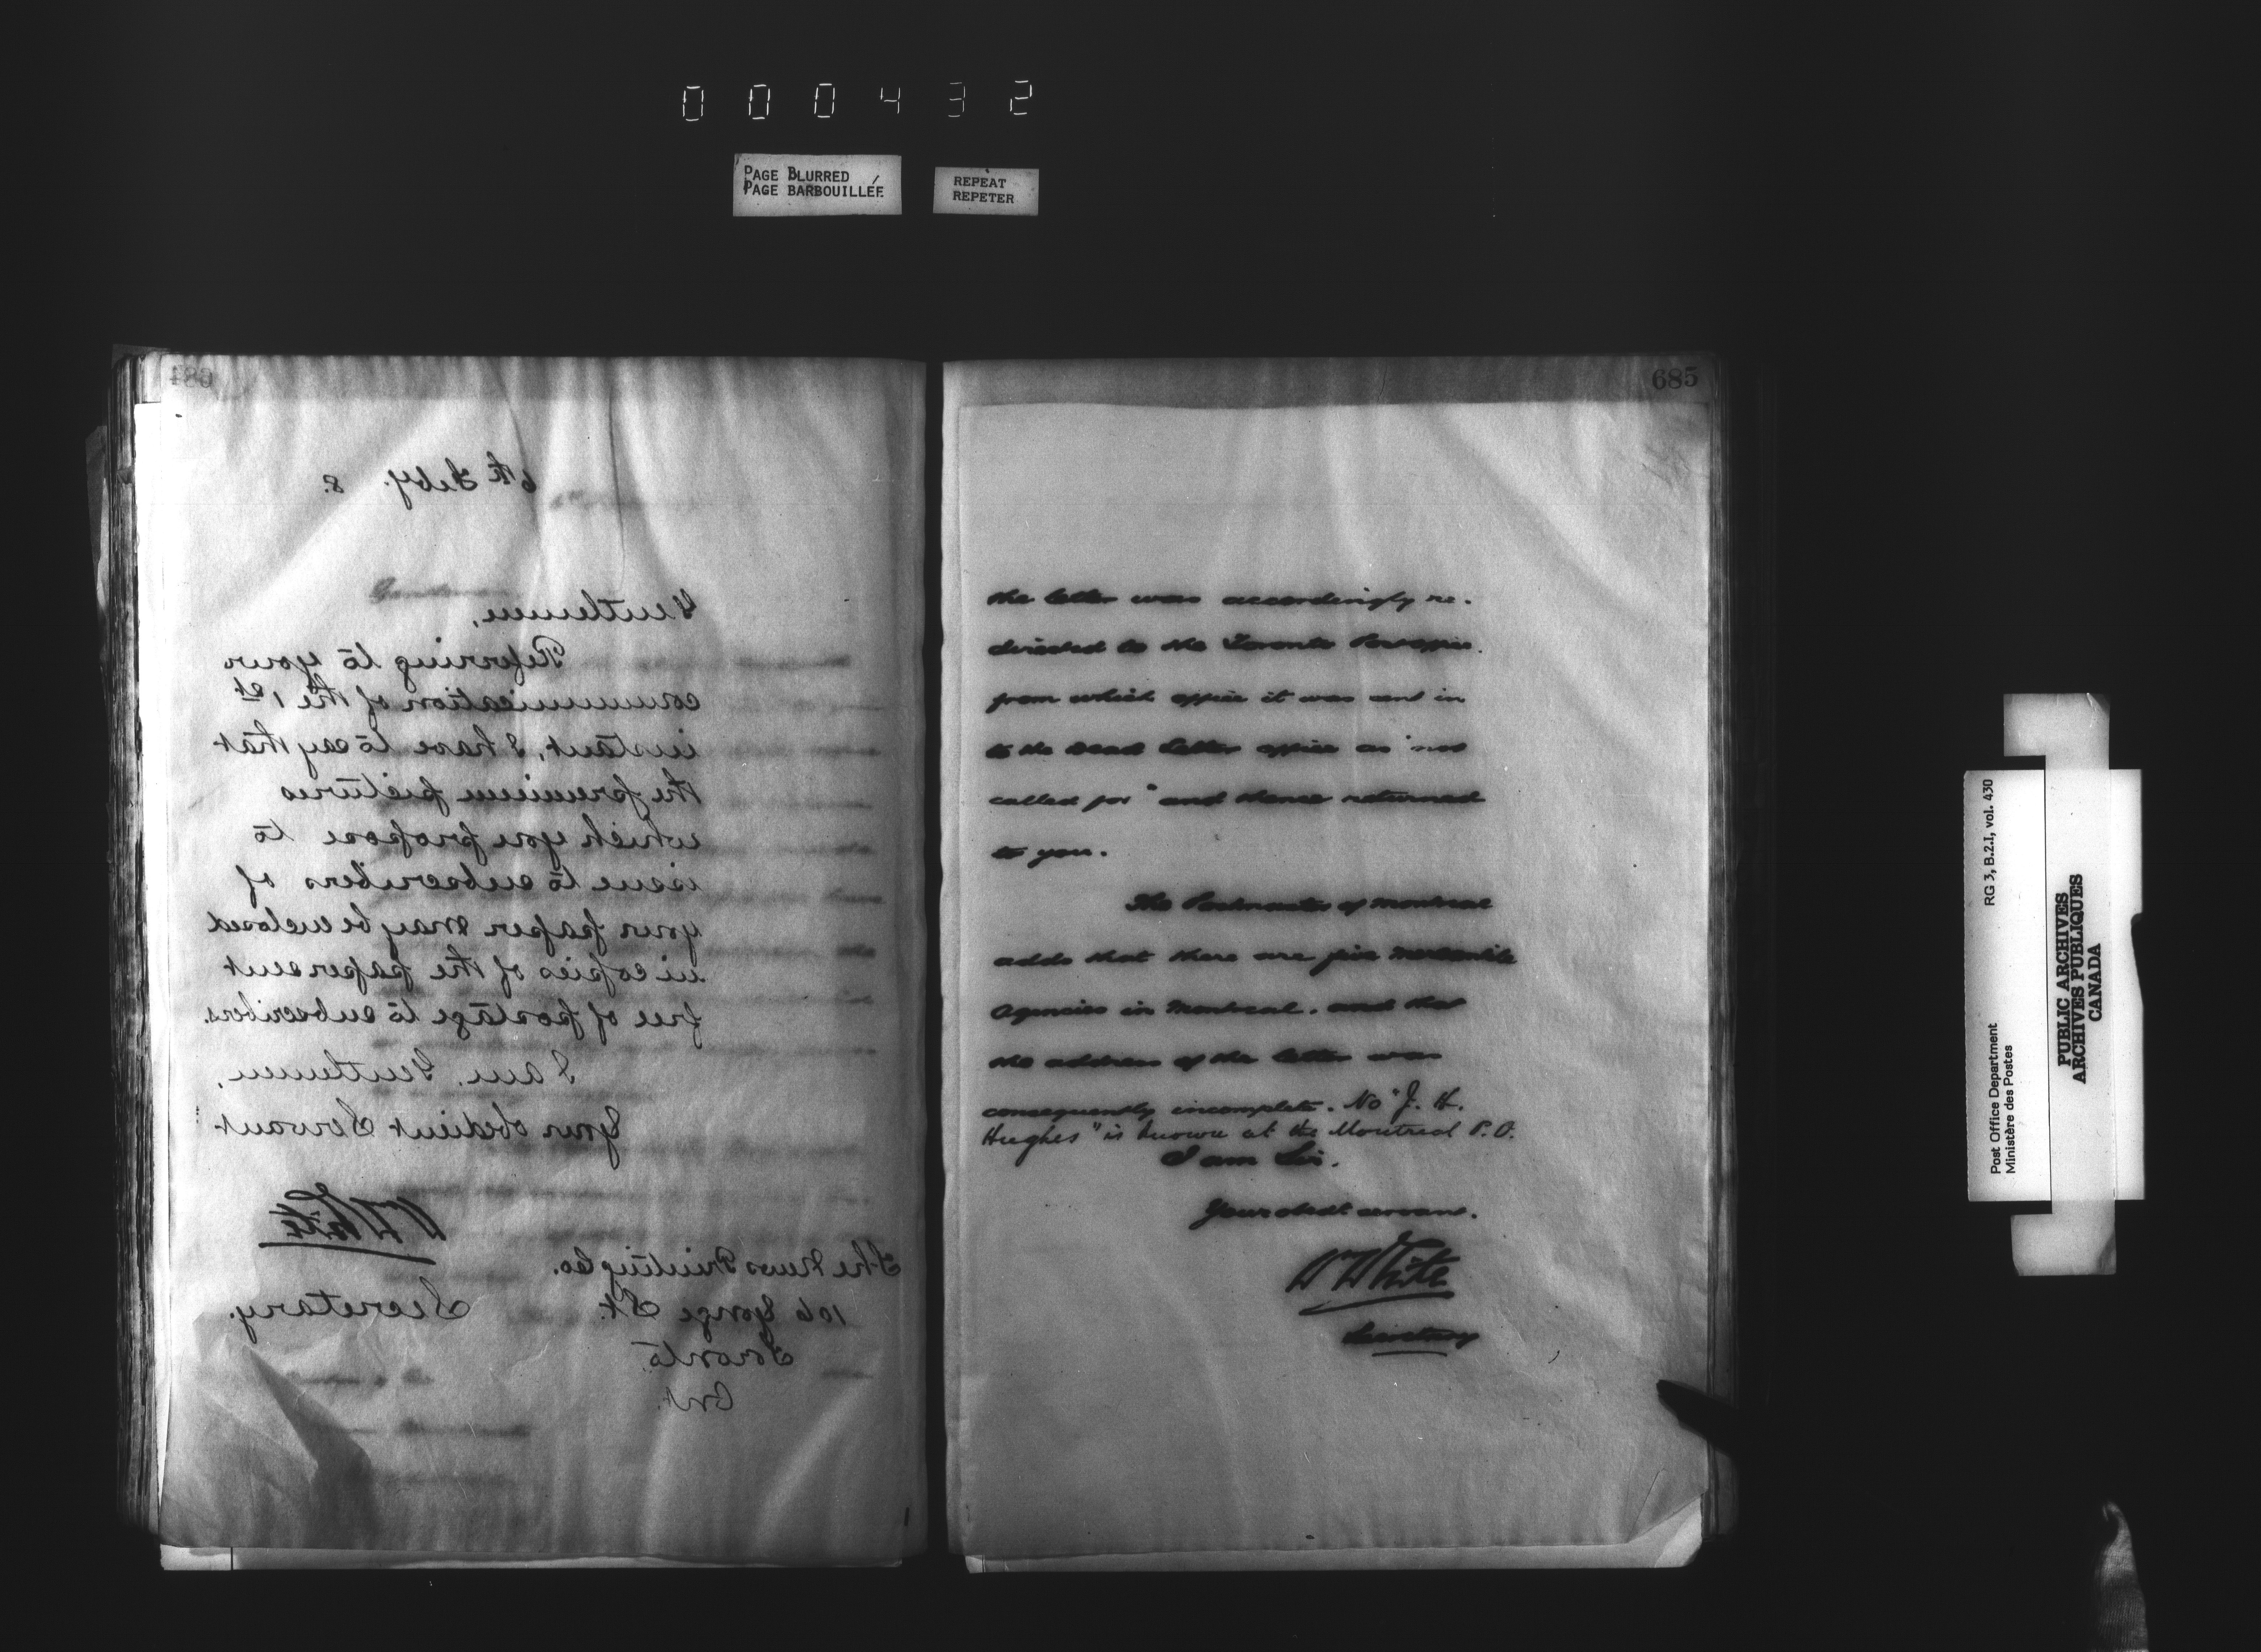 000432
PAGE BLURRED
PAGE BARBOUILLÉE
REPEAT
REPETER
684
6th Feby. 8.
Gentlemen,
Referring to your
communication of the 1st
instant, I have to say that
the premium pictures
which you propose to
issue to subscribers of
your paper may be enclosed
in copies of the paper sent
free of postage to subscribers.
I am, Gentlemen,
Your obedient Servant
W White
Secretary.
The News Printing Co.
106 Yonge St.
Toronto
Ont.
685
the letter was accordingly re-
directed to the Toronto Post office.
from which office it was sent in
to the Dead Letter office as "not
called for" and thence returned
to you.
The Postmaster of Montreal
adds that there are five mercantile
agencies in Montreal. and that
the address of the letter was
consequently incomplete. No "J. H.
Hughes" is known at the Montreal P.O.
I am Sir.
Your obedt servant.
W White
Secretary
Post Office Department
Ministère des Postes
RG 3, B.2.I, vol. 430
PUBLIC ARCHIVES
ARCHIVES PUBLIQUES
CANADA